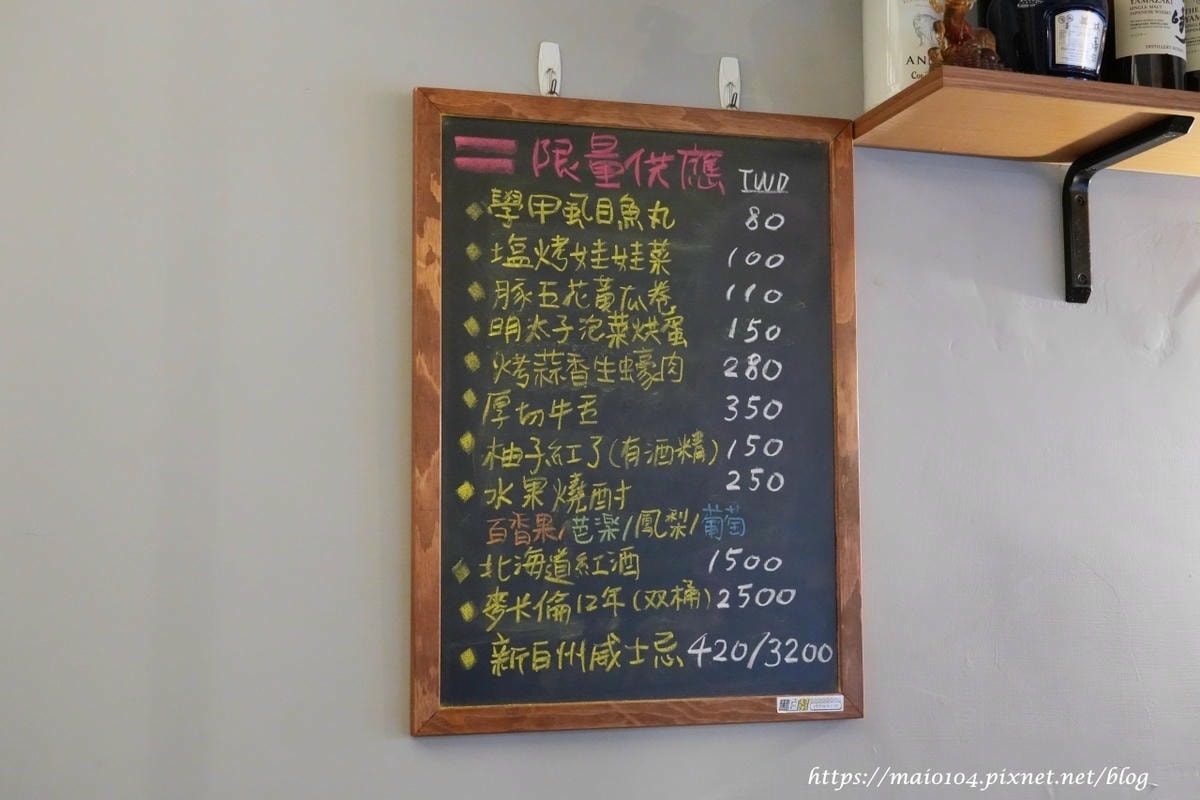 限量供應 TWD
學甲虱目魚丸 80
塩烤娃娃菜 100
豚五花黃瓜卷 110
明太子泡菜烘蛋 150
烤蒜香生蠔肉 280
厚切牛舌 350
柚子紅了(有酒精) 150
水果燒酎 250
百香果/芭樂/鳳梨/葡萄
北海道紅酒 1500
麥卡倫12年(双桶) 2500
新白州威士忌 420/3200
YAMAZAKI
SINGLE MALT
JAPANESE WHISKY
https://maio104.pixnet.net/blog